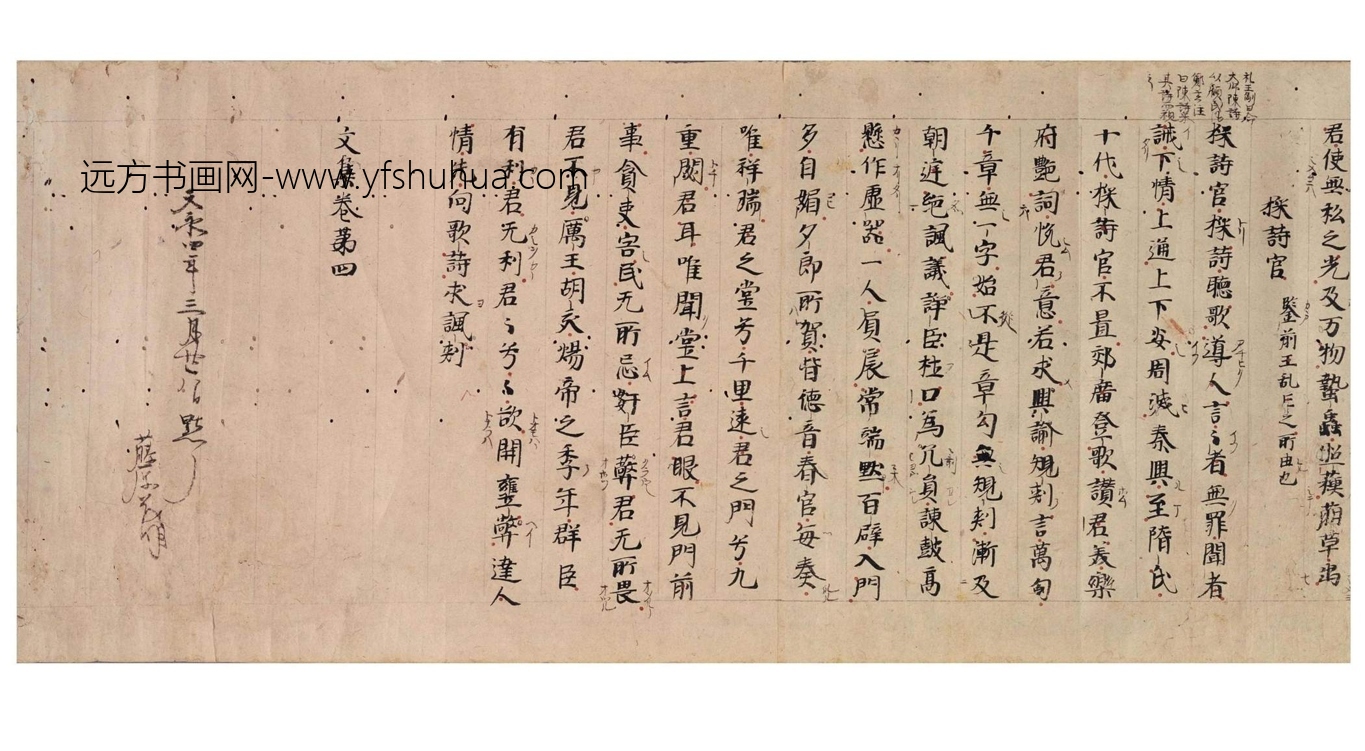 君使無私之光及万物蟄蟲昭蘓萌草出
採詩官 鑒前王乱亡之所由也
採詩官採詩聽歌導人言々者無罪聞者
誡下情上通上下安周滅秦興至隋氏
十代採詩官不置郊廟登歌讃君美樂
府艶詞悦君意若求興諭規刾言萬句
千章無一字始不是章勾無規刾漸及
朝廷絶諷議諍臣杜口為冗負諫鼓高
懸作虚器一人負扆常端默百辟入門
多自媚夕郎所賀皆徳音春官毎奏
唯祥瑞君之堂兮千里遠君之門兮九
重閟君耳唯聞堂上言君眼不見門前
事貪吏害民无所忌奸臣蔽君无所畏
君不見厲王胡亥煬帝之季年群臣
有利君无利君々兮々欲開壅弊達人
情先向歌詩求諷刾
文集巻第四
天永四年三月廿八日點了
藤原茂明
远方书画网-www.yfshuhua.com